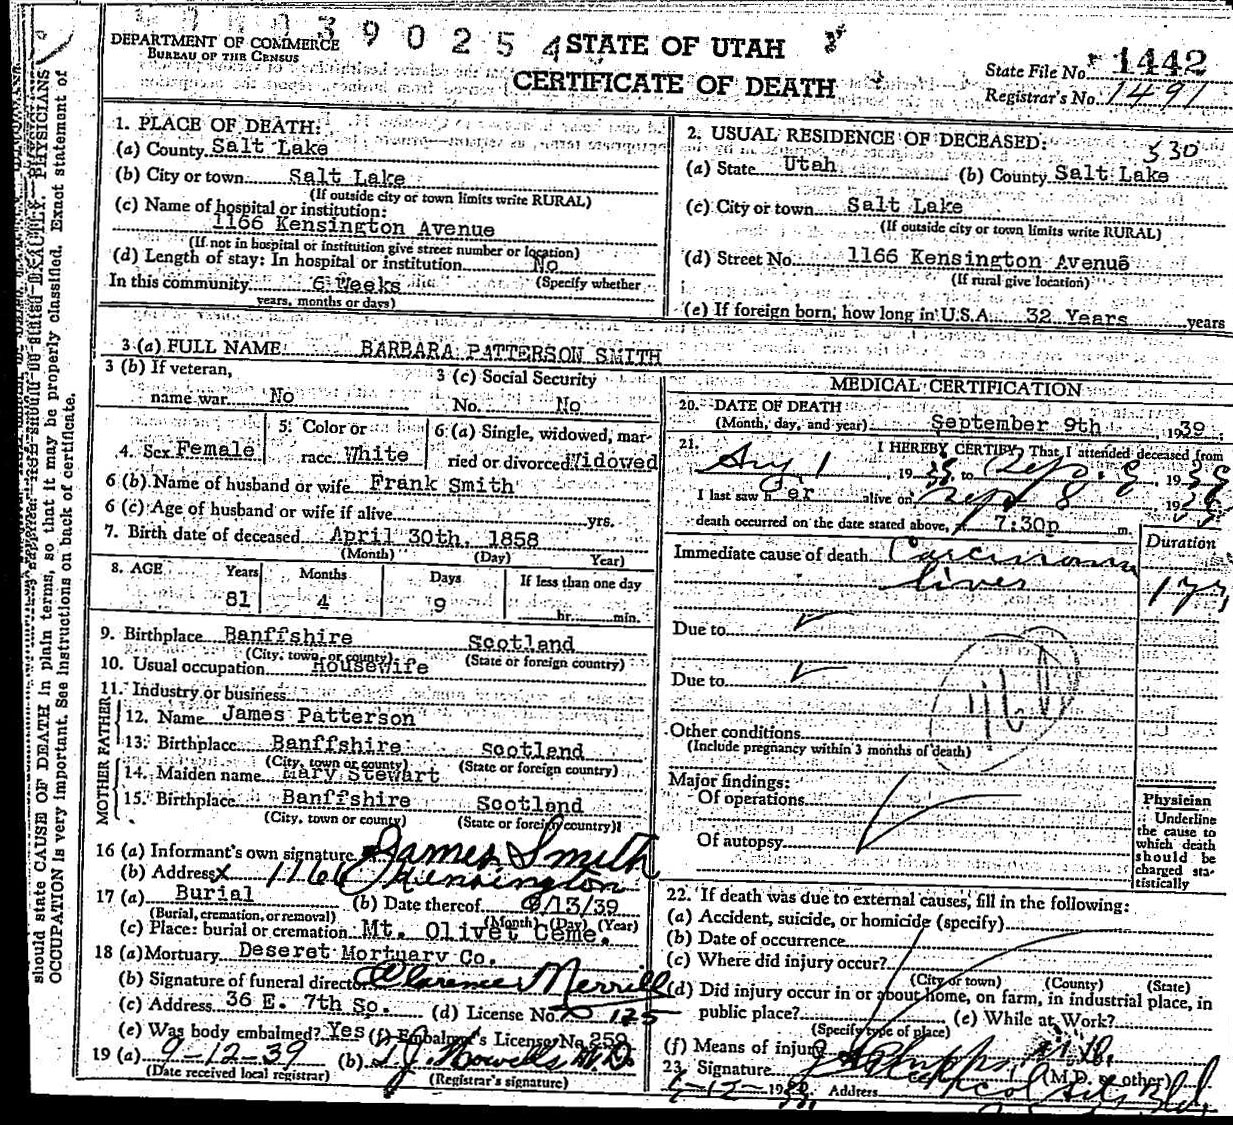 390254
DEPARTMENT OF COMMERCE
BUREAU OF THE CENSUS
STATE OF UTAH
CERTIFICATE OF DEATH
State File No. 1442
Registrar's No. 1491
1. PLACE OF DEATH:
(a) County Salt Lake
(b) City or town Salt Lake
(If outside city or town limits write RURAL)
(c) Name of hospital or institution:
1166 Kensington Avenue
(If not in hospital or institution give street number or location)
(d) Length of stay: In hospital or institution No
In this community 6 Weeks (Specify whether
years, months or days)
2. USUAL RESIDENCE OF DECEASED:
530
(a) State Utah (b) County Salt Lake
(c) City or town Salt Lake
(If outside city or town limits write RURAL)
(d) Street No. 1166 Kensington Avenue
(If rural give location)
(e) If foreign born, how long in U.S.A. 32 Years years
3 (a) FULL NAME BARBARA PATTERSON SMITH
3 (b) If veteran,
name war No
3 (c) Social Security
No. No
4. Sex Female
5. Color or
race White
6 (a) Single, widowed, mar-
ried or divorced Widowed
6 (b) Name of husband or wife Frank Smith
6 (c) Age of husband or wife if alive yrs.
7. Birth date of deceased April 30th, 1858
(Month) (Day) Year)
8. AGE Years Months Days If less than one day
81 4 9 hr. min.
9. Birthplace Banffshire Scotland
(City, town, or county) (State or foreign country)
10. Usual occupation Housewife
11. Industry or business
FATHER
12. Name James Patterson
13. Birthplace Banffshire Scotland
(City, town or county) (State or foreign country)
MOTHER
14. Maiden name Mary Stewart
15. Birthplace Banffshire Scotland
(City, town or county) (State or foreign country)
16 (a) Informant's own signature James Smith
(b) Address x 1166 Kensington
17 (a) Burial (b) Date thereof 9/13/39
(Burial, cremation, or removal) (Month) (Day) (Year)
(c) Place: burial or cremation Mt. Olivet Ceme.
18 (a) Mortuary Deseret Mortuary Co.
(b) Signature of funeral director Clarence Merrill
(c) Address 36 E. 7th So. (d) License No. 125
(e) Was body embalmed? Yes (f) Embalmer's License No. 259
19 (a) 9-12-39 (b) T. J. Howells M.D.
(Date received local registrar) (Registrar's signature)
MEDICAL CERTIFICATION
20. DATE OF DEATH
(Month, day, and year) September 9th, 1939
21. I HEREBY CERTIFY, That I attended deceased from
Aug 1, 1938, to Sep. 8 1939
I last saw her alive on Sept 8 19
death occurred on the date stated above, 7:30p m.
Duration
Immediate cause of death Carcinoma
liver
1 yr,
Due to
Due to
Other conditions
(Include pregnancy within 3 months of death)
Major findings:
Of operations
Of autopsy
Physician
Underline
the cause to
which death
should be
charged sta-
tistically
22. If death was due to external causes, fill in the following:
(a) Accident, suicide, or homicide (specify)
(b) Date of occurrence
(c) Where did injury occur?
(City or town) (County) (State)
(d) Did injury occur in or about home, on farm, in industrial place, in
public place? (e) While at Work?
(Specify type of place)
(f) Means of injury
23. Signature (M.D. or other)
9-12-19 Address
should state CAUSE OF DEATH in plain terms, so that it may be properly classified. Exact statement of
OCCUPATION is very important. See instructions on back of certificate.